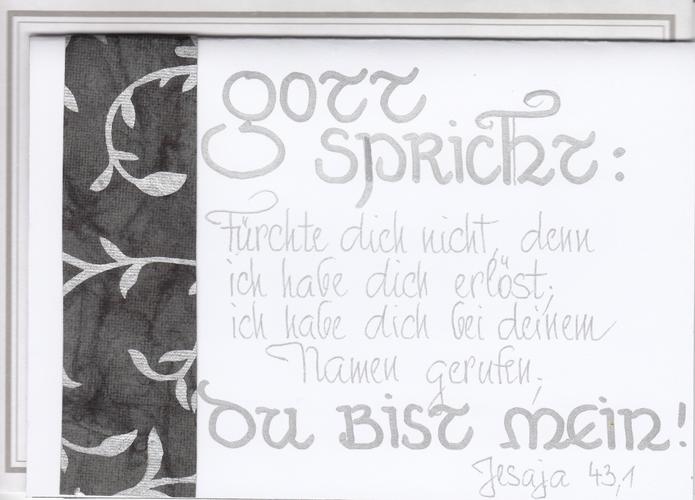 Gott
spricht:
Fürchte dich nicht, denn
ich habe dich erlöst;
ich habe dich bei deinem
Namen gerufen;
Du bist mein!
Jesaja 43,1